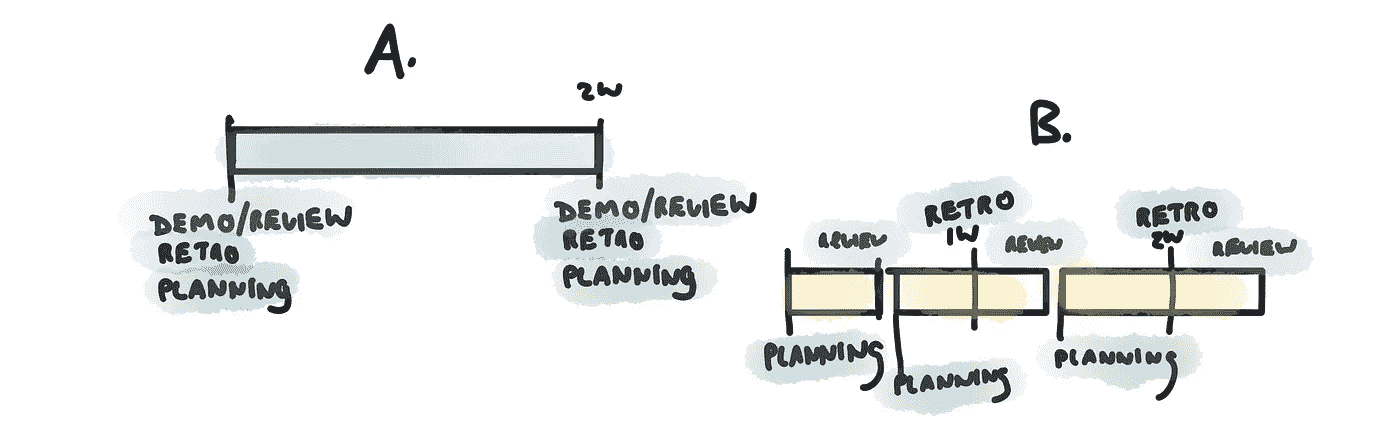 A.
2W
DEMO/REVIEW
RETRO
PLANNING
DEMO/REVIEW
RETRO
PLANNING
B.
REVIEW
RETRO
1W
REVIEW
RETRO
2W
REVIEW
PLANNING
PLANNING
PLANNING